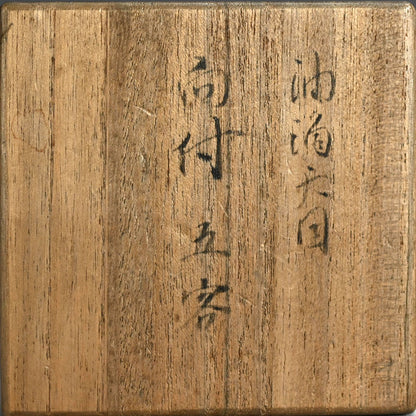 油滴天目
向付 五客